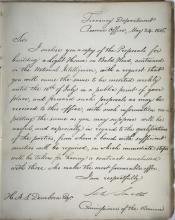 Treasury Department
Revenue Office, May 24. 18
Sir
I enclose you a copy of the Proposals for
building a Light House on Boda Island, contained
in the National Intelligencer, with a request that
you will cause the same to be inserted weekly
until the 10th of July in a public print of your
place, and forward such proposals as may be
received to this office, with such information re-
specting the same as you may suppose will be
useful and especially in regard to the
of the parties, from whom a bond with sufficient
sureties will be required, in which immediate steps
will be taken for having a contract concluded
with those who make the most favourable offer.
I am respectfully
H. A. S. Dearborn Esqr
Commissioner of the Revenue